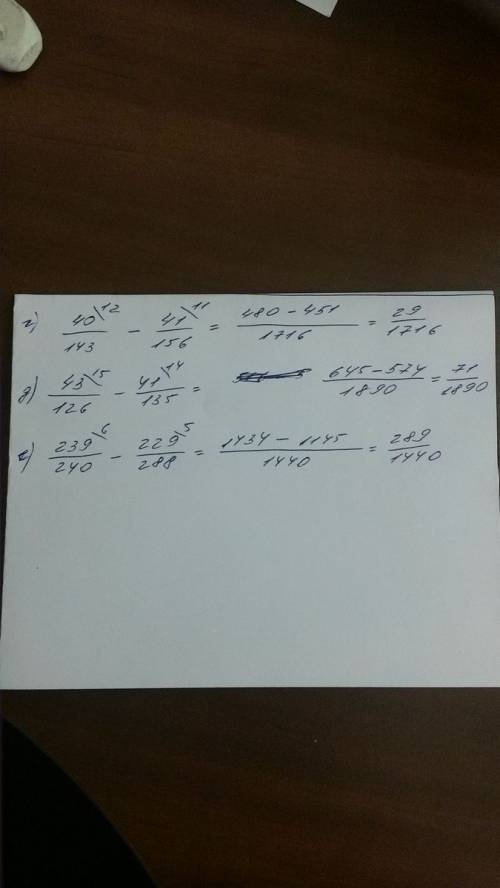 г) 40\12/143 - 41\11/156 = 480 - 451/1716 = 29/1716
д) 43\15/126 - 41\14/135 = 645 - 574/1890 = 71/1890
е) 239\6/240 - 229\5/288 = 1434 - 1145/1440 = 289/1440